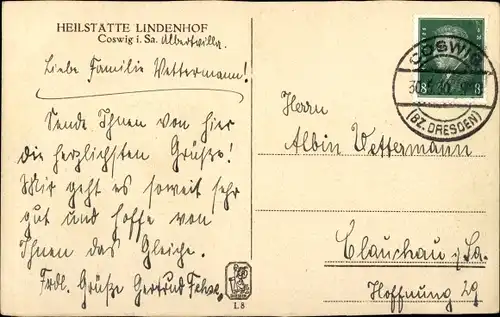 HEILSTÄTTE LINDENHOF
Coswig i. Sa. Albertvilla.
Liebe Familie Vettermann!
Sende Ihnen von hier
die herzlichsten Grüße!
Mir geht es soweit sehr
gut und hoffe von
Ihnen das Gleiche.
Frdl. Grüße Gertrud
L8
COSWIG
(BZ. DRESDEN)
8 8
Herrn
Albin Vettermann
Glauchau i/Sa.
Hoffnung 29